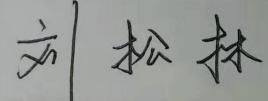 刘松林